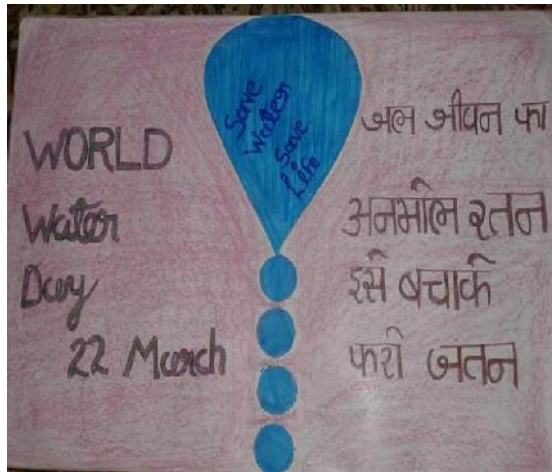 WORLD
Water
Day
22 March
Save
Water
Save
Life
जल जीवन का
अनमोल रतन
इसे बचाके
करो जतन